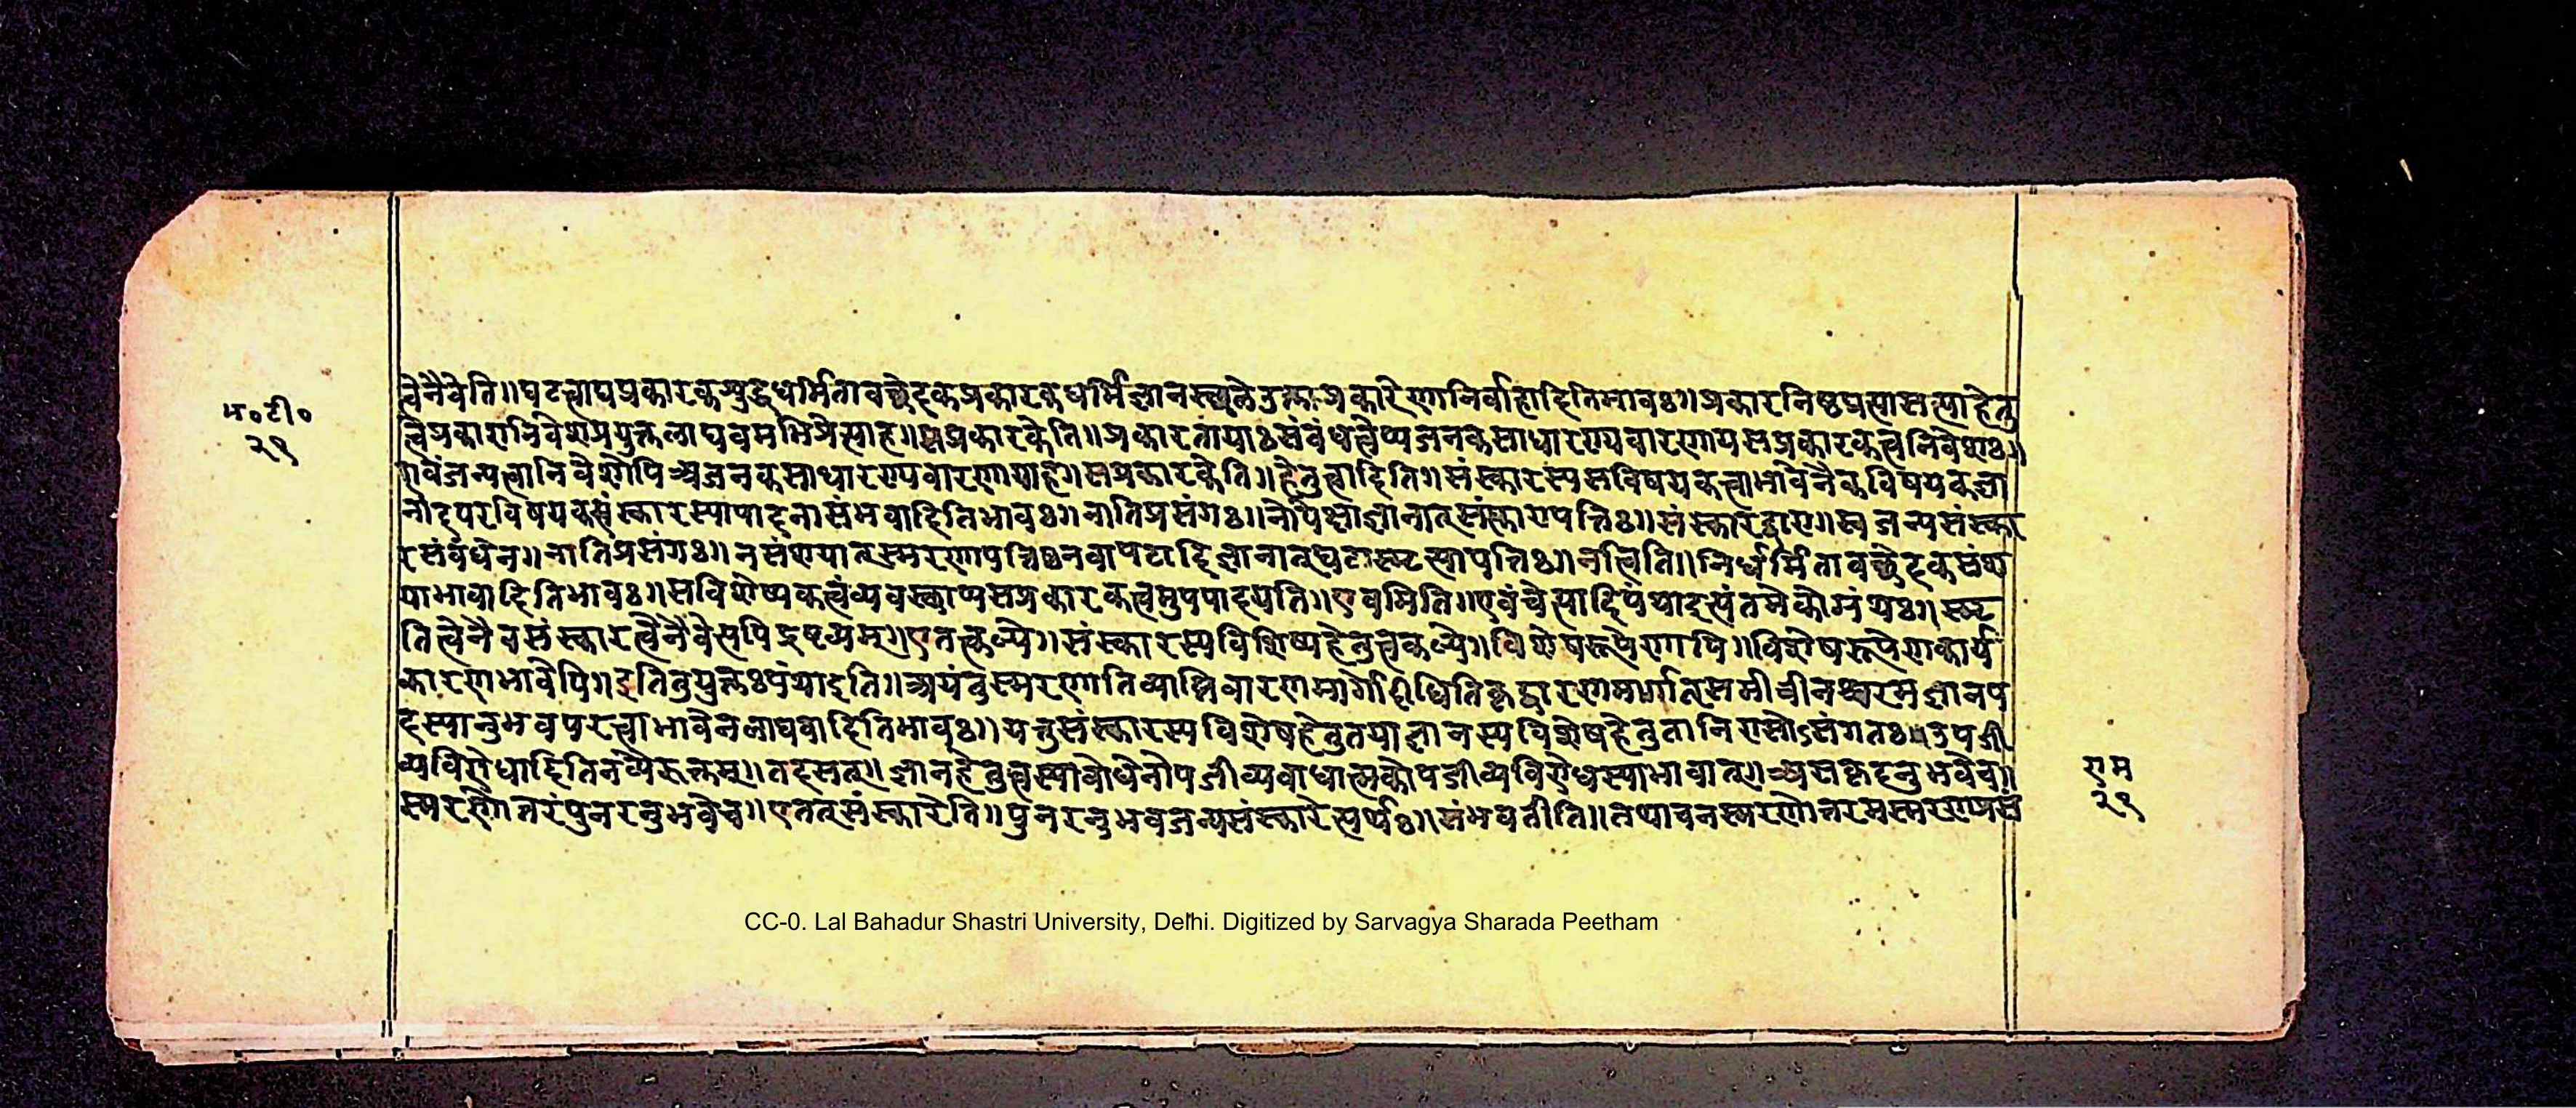 त्वेनैवेति॥घटत्वाद्यप्रकारकशुद्धधर्मितावच्छेदकप्रकारकधर्मिज्ञानस्थले प्रकारेणानिर्वाहादितिभावः॥प्रकारनिष्ठप्रत्यासत्त्याहेतु
त्वेप्रकारानिवेशप्रयुक्तलाघवमभिप्रेत्याह॥सप्रकारकेति॥प्रकारतायाःसंबंधत्वेप्यजनकसाधारण्यवारणायसप्रकारकत्वनिवेशः॥
एवंजन्यत्वानिवेशेपिअजनकसाधारण्यवारणायाह॥सप्रकारकेति॥हेतुत्वादिति॥संस्कारस्यसविषयकत्वाभावेनैकविषयकज्ञा
नादपरविषयकसंस्कारस्यापादनासंभवादितिभावः॥नातिप्रसंगः॥नोपेक्षाज्ञानात्संस्कारापत्तिः॥संस्कारद्वारा॥स्वजन्यसंस्का
रसंबंधेन॥नातिप्रसंगः॥नसंशयात्स्मरणापत्तिर्नवा ज्ञानात् नन्विति॥निर्धर्मितावच्छेदकसंश
याभावादितिभावः॥सविशेष्यकत्वंव्यवस्थाप्यसप्रकारकत्वमुपपादयति॥एवमिति॥एवंचेत्यादिपंथाइत्यंतमेकोग्रंथः॥स्मृ
तित्वेनैवसंस्कारत्वेनैवेत्यपिद्रष्टव्यम्॥एतत्कल्पे॥संस्कारस्यविशिष्यहेतुत्वकल्पे॥विशेषरूपेणापि॥विशेषरूपेणकार्य
कारणभावेपि॥इतितुयुक्तःपंथाइति॥अयंचस्मरणातिव्याप्तिवारणमार्गो समीचीनश्चरमज्ञानप
दस्यानुभवपरत्वाभावेनलाघवादितिभावः॥यत्तुसंस्कारस्यविशेषहेतुतयाज्ञानस्यविशेषहेतुतानिरासोऽसंगतः॥उपजी
व्यविरोधादितिनव्यैरुक्तम्॥तदसत्॥ज्ञानहेतुत्वस्याबोधेनोपजीव्यबाधात्मकोपजीव्यविरोधस्याभावात्॥असकृदनुभवेच॥
स्मरणोत्तरंपुनरनुभवेच॥एतत्संस्कारेति॥पुनरनुभवजन्यसंस्कारेत्यर्थः॥संभवतीति॥तथाचनस्मरणोत्तरमस्मरणप्रसं
म॰टी॰
२९
राम
२९
CC-0. Lal Bahadur Shastri University, Delhi. Digitized by Sarvagya Sharada Peetham